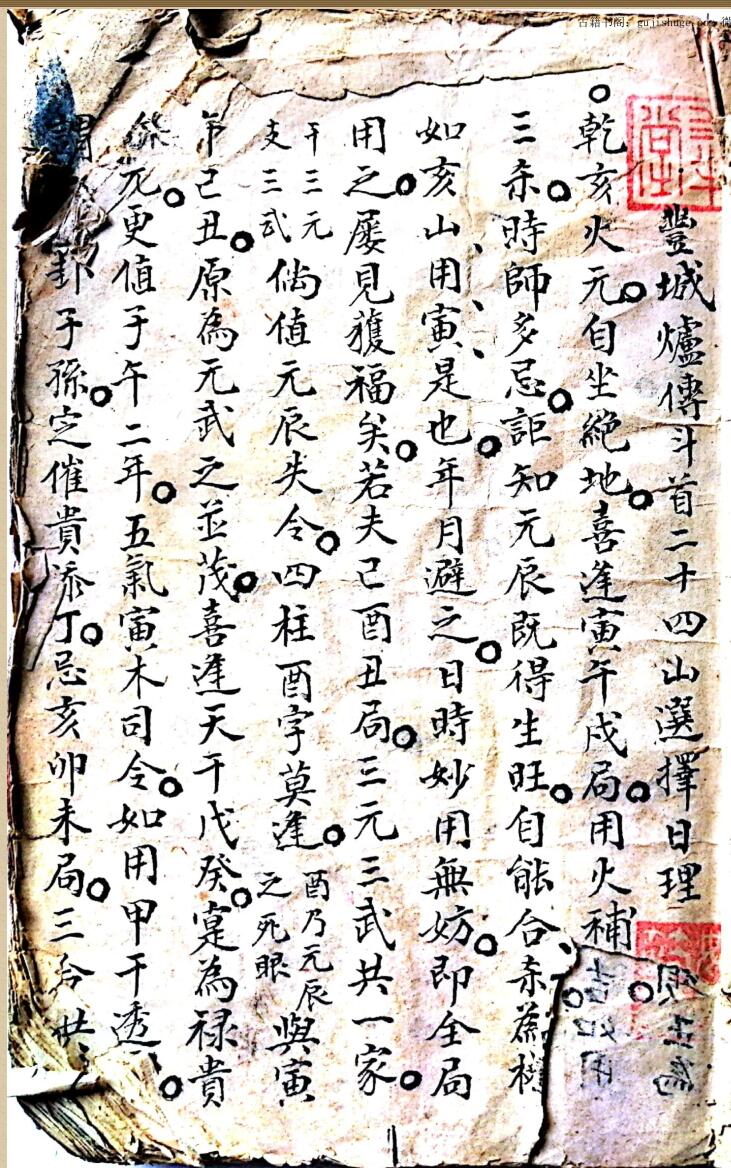 古籍书阁：gujishuge.co
豐城爐傳斗首二十四山選擇日理
乾亥火元自坐絶地喜逢寅午戌局用火補
三杀時師多忌詎知元辰既得生旺自能合杀為
如亥山用寅是也年月避之日時妙用無妨即全局
用之屡見獲福矣若夫己酉丑局三元三武共一家
干三元支三武倘值元辰失令四柱酉字莫逢酉乃元辰之死眼與寅
午己丑原為元武之並茂喜逢天干戊癸寔為禄貴
元更值子午二年五氣寅木司令如用甲干透
卦子孫定催貴添丁忌亥卯未局三合